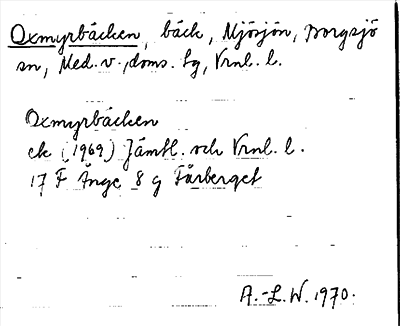 Oxmyrbäcken, bäck, Mjösjön, Borgsjö
sn, Med. v. doms. sg, Vrnl. l.
Oxmyrbäcken
ek (1969) Jämtl. och Vrnl. l.
17 F Ånge 8 g Fårberget
A.-L.W. 1970.